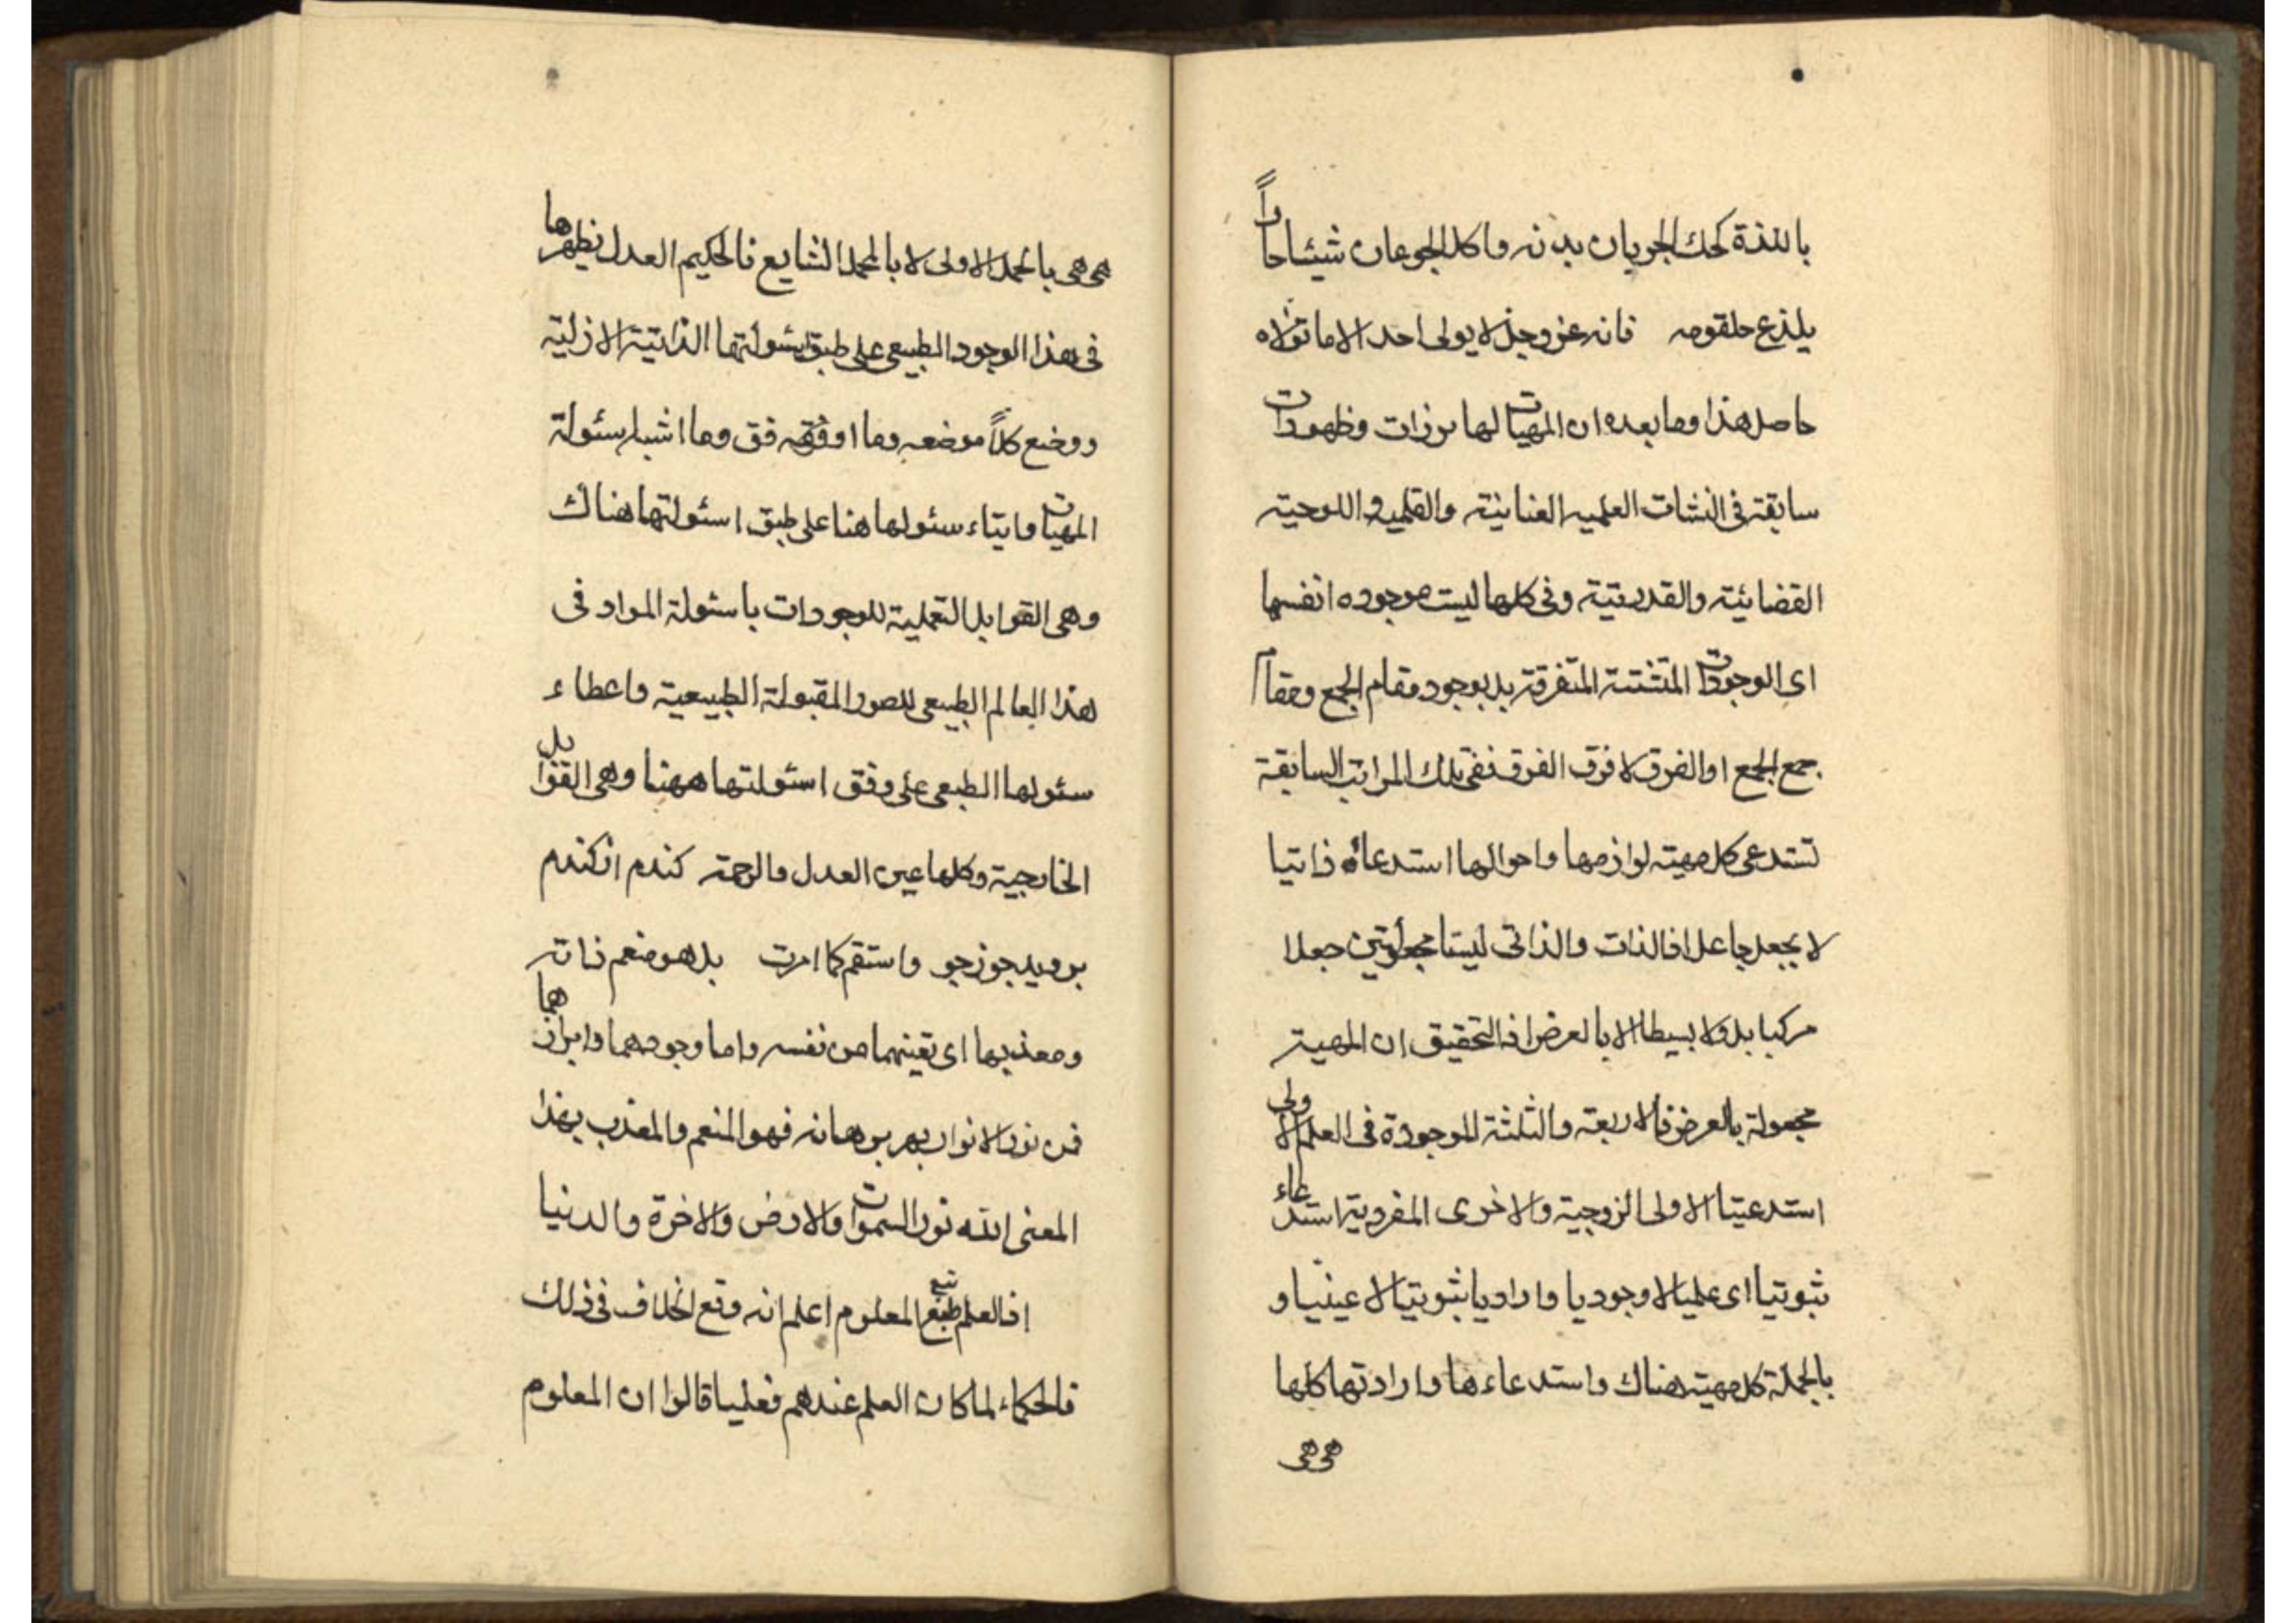 باللذة كحك الجربان بدنه واكل الجوعان شيئا حاراً
يلذع حلقومه فانه عز وجل لا يولى احد الا ما تولاه
حاصل هذا وما بعده ان المهيات لها برزات وظهورات
سابقة فى النشات العلميه العنائية والقلميه واللوحية
القضائية والقدريّة وفى كلها ليست موجوده انفسها
اى الوجودات المتشتتة المتفرقة بل بوجود مقام الجمع ومقام
جمع الجمع او الفرق لا فرق الفرق ففى تلك المراتب السابقة
تستدعى كل مهية لوازمها واحوالها استدعاء ذاتيا
لا بجعل جاعل اذ الذات والذاتى ليستا مجعولتين جعلا
مركبا بل ولا بسيطا الا بالعرض اذ التحقيق ان المهية
مجعولة بالعرض فالاربعة والثلثة الموجودة فى العلم الاولى
استدعيتا الاولى الزوجية والاخرى المفردية استدعاء
ثبوتيا اى علميا لا وجوديا واراديا ثبوتيا لا عينيا و
بالجملة كل مهية هناك واستدعاءها وارادتها كلها
هى هى
هى هى بالحمل الاولى لا بالحمل الشايع فالحكيم العدل يظهرها
فى هذا الوجود الطبيعى على طبق اسئولتها الذاتية الازلية
ووضع كلاً موضعه وما اوفقه فق وما اشبه اسئولة
المهيات وايتاء سئولها هنا على طبق اسئولتها هناك
وهى القوابل التعملية للوجودات باسئولة المواد فى
هذا العالم الطبيعى للصور المقبولة الطبيعية واعطاء
سئولها الطبعى على وفق اسئولتها ههنا وهى القوابل
الخارجية وكلها عين العدل والرحمة كندم از كندم
برويد جو ز جو واستقم كما امرت بل هو منعم ذاته
ومعذبها اى تعينهما من نفسه واما وجودهما وابرازهما
فمن نور الانوار بهر برهانه فهو المنعم والمعذب بهذا
المعنى الله نور السموات والارض والاخرة والدنيا
اذ العلم تبع المعلوم اعلم انه وقع الخلاف فى ذلك
فالحكماء لما كان العلم عندهم فعليا قالوا ان المعلوم